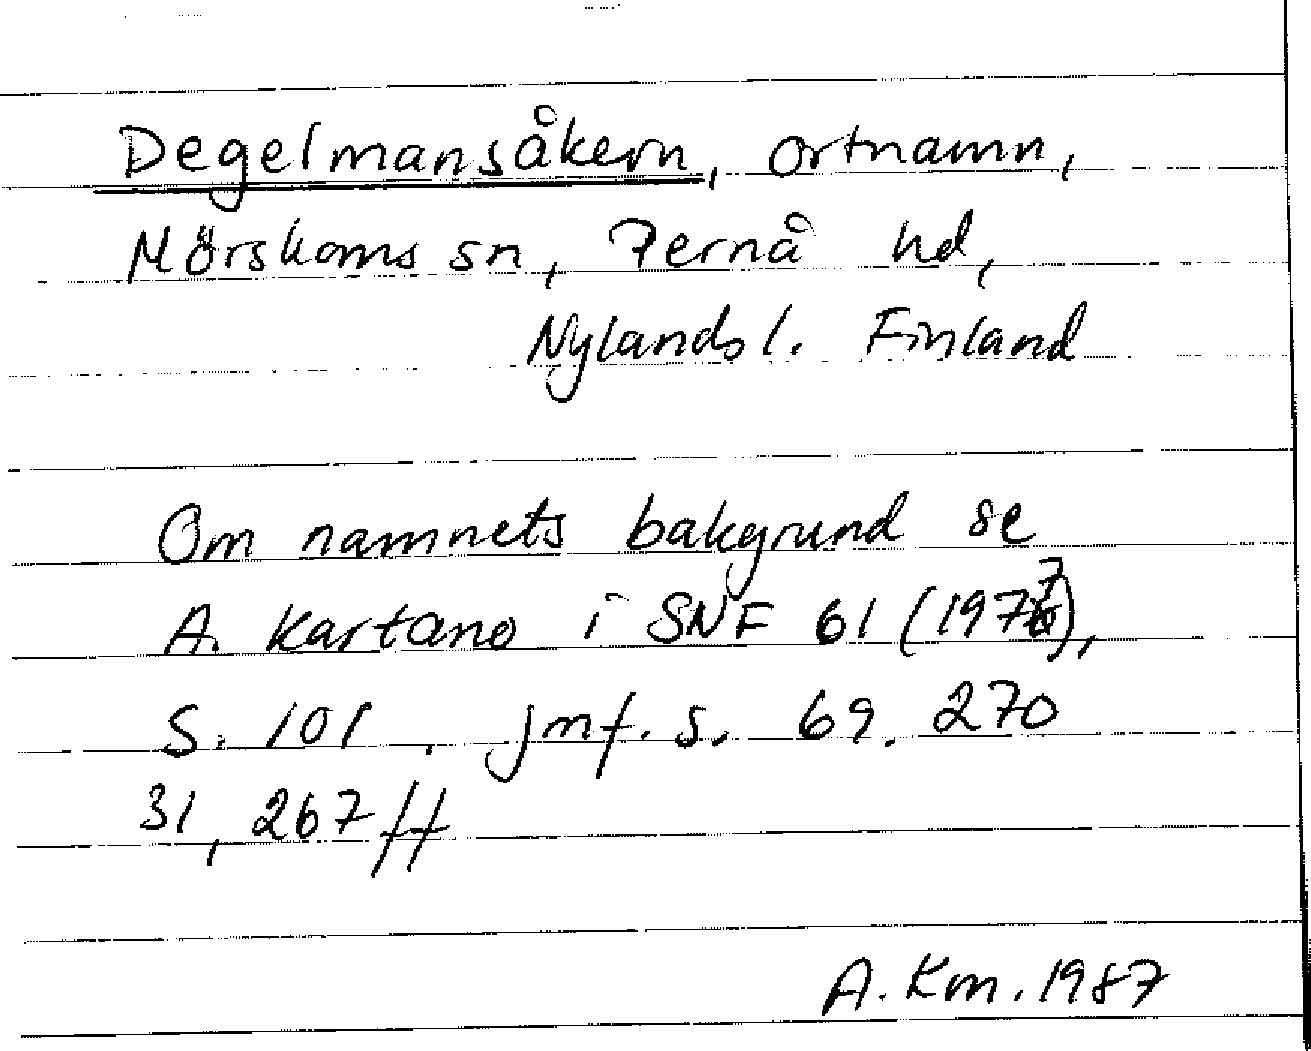 Degelmansåkern, ortnamn,
Mörskoms sn, Pernå hd,
Nylands l. Finland
Om namnets bakgrund se
A. Kartano i SNF 61 (1977),
S. 101. jmf. s. 69. 270
31, 267 ff
A. Km. 1987